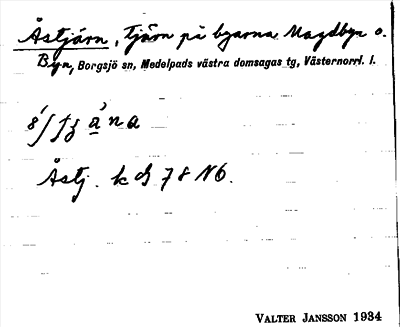 Åstjärn, tjärn på byarna Magdbyn o.
Byn, Borgsjö sn, Medelpads västra domsagas tg, Västernorrl. l.
Åstj. k ch 78 N6.
VALTER JANSSON 1934